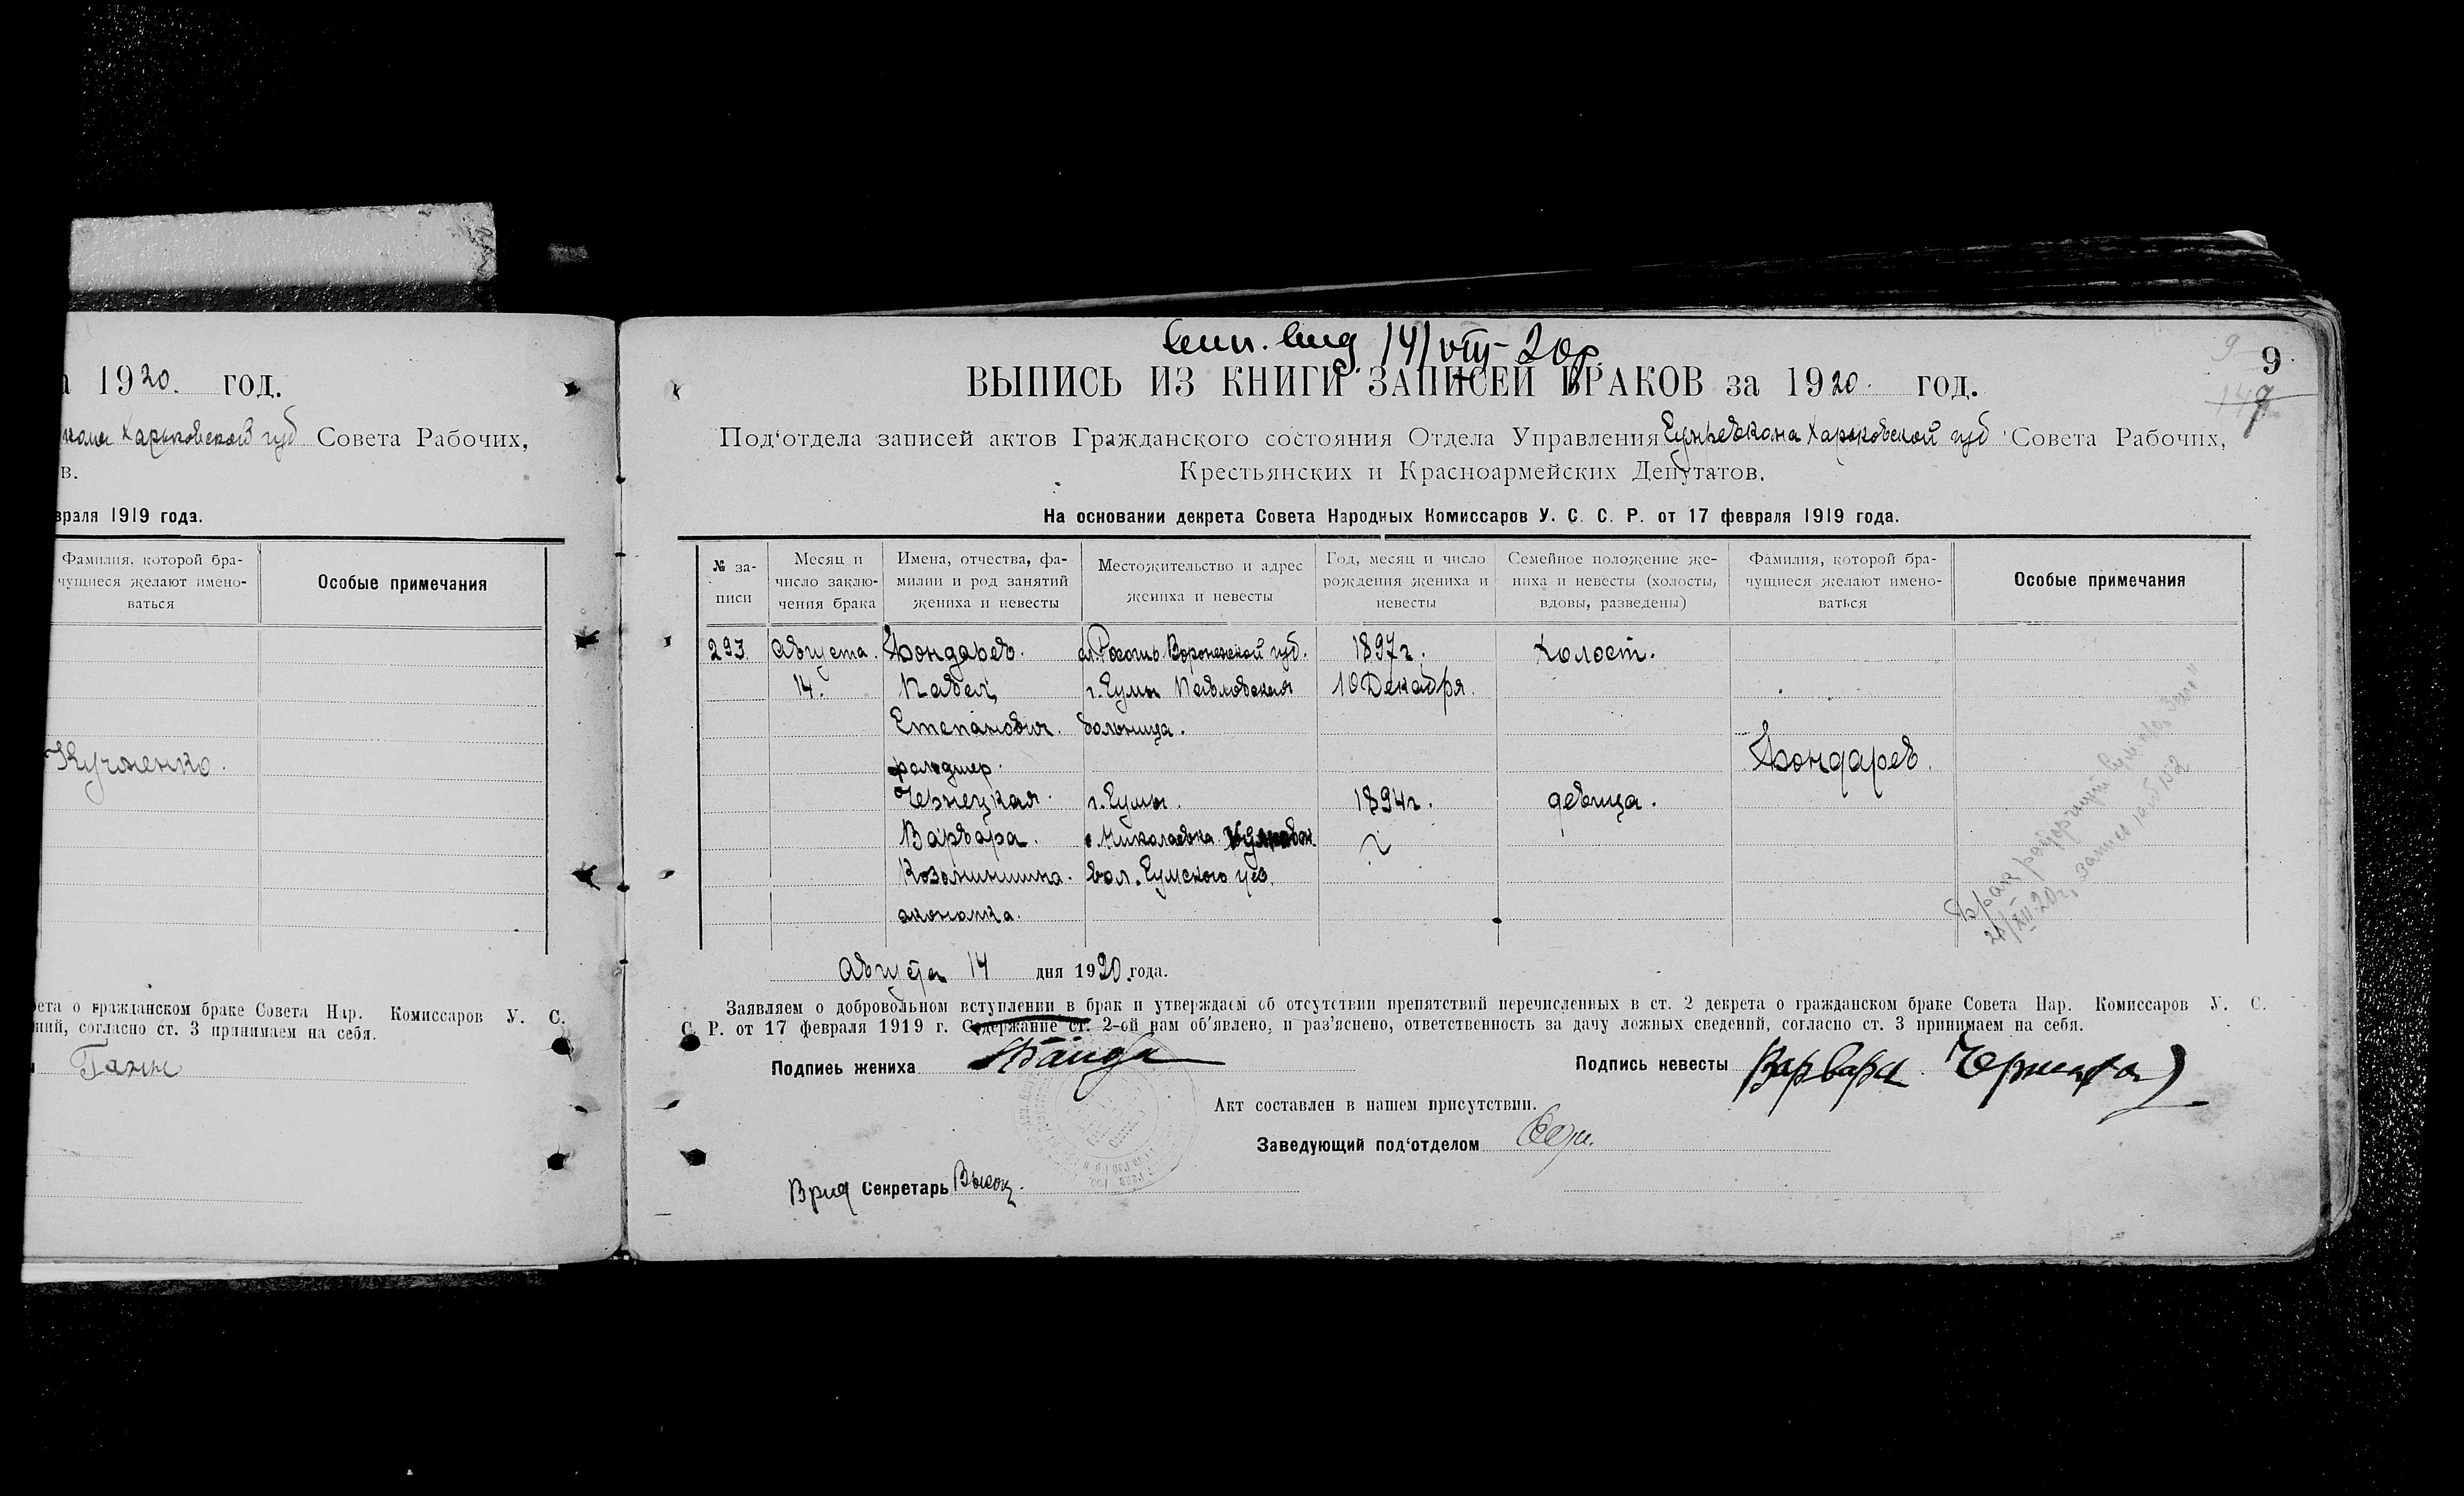 1920. год.
Харьковской губ Совета Рабочих,
в.
враля 1919 года.
Фамилия, которой бра-
чущиеся желают имено-
ваться
Особые примечания
Кучменко.
вета о гражданском браке Совета Нар. Комиссаров У. С.
ний, согласно ст. 3 принимаем на себя.
9
14/VIII-20р.
9
ВЫПИСЬ ИЗ КНИГИ ЗАПИСЕЙ БРАКОВ за 1920. год.
Под‘отдела записей актов Гражданского состояния Отдела Управления Сумревкома Харьковской губ Совета Рабочих,
Крестьянских и Красноармейских Депутатов.
На основании декрета Совета Народных Комиссаров У. С. С. Р. от 17 февраля 1919 года.
№ за-
писи
Месяц и
число заклю-
чения брака
Имена, отчества, фа-
милии и род занятий
жениха и невесты
Местожительство и адрес
жениха и невесты
Год, месяц и число
рождения жениха и
невесты
Семейное положение же-
ниха и невесты (холосты,
вдовы, разведены)
Фамилия, которой бра-
чущиеся желают имено-
ваться
Особые примечания
293. Августа. Бондарев. сл. Россошь Воронежской губ. 1897г. Холост.
14. Павел г. Сумы Павловская 10 Декабря.
Степанович. больница.
фельдшер. Бондарев.
Чернецкая. г. Сумы. 1894г. девица.
Варвара. Николаевка
вол. Сумского уез.
экономка.
Августа 14 дня 1920 года.
Заявляем о добровольном вступлении в брак и утверждаем об отсутствии препятствий перечисленных в ст. 2 декрета о гражданском браке Совета Нар. Комиссаров У. С.
С. Р. от 17 февраля 1919 г. Содержание ст. 2-ой нам об‘явлено, и раз‘яснено, ответственность за дачу ложных сведений, согласно ст. 3 принимаем на себя.
Подпись жениха
Подпись невесты Варвара
Акт составлен в нашем присутствии.
Заведующий под‘отделом
Врид Секретарь